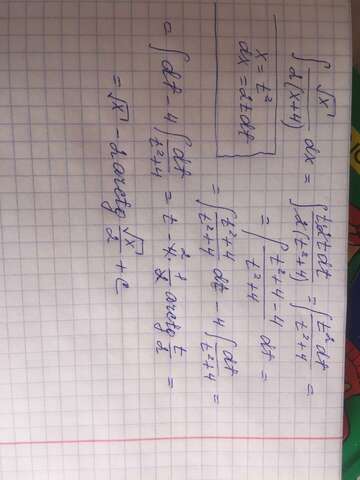 ∫ √x / 2(x+4) dx = ∫ t·2t dt / 2(t²+4) = ∫ t² dt / t²+4 =
x = t²
dx = 2t dt
= ∫ t²+4-4 / t²+4 dt =
= ∫ t²+4 / t²+4 dt - 4 ∫ dt / t²+4 =
= ∫ dt - 4 ∫ dt / t²+4 = t - 4· 1/2 arctg t/2 =
= √x - 2 arctg √x/2 + C